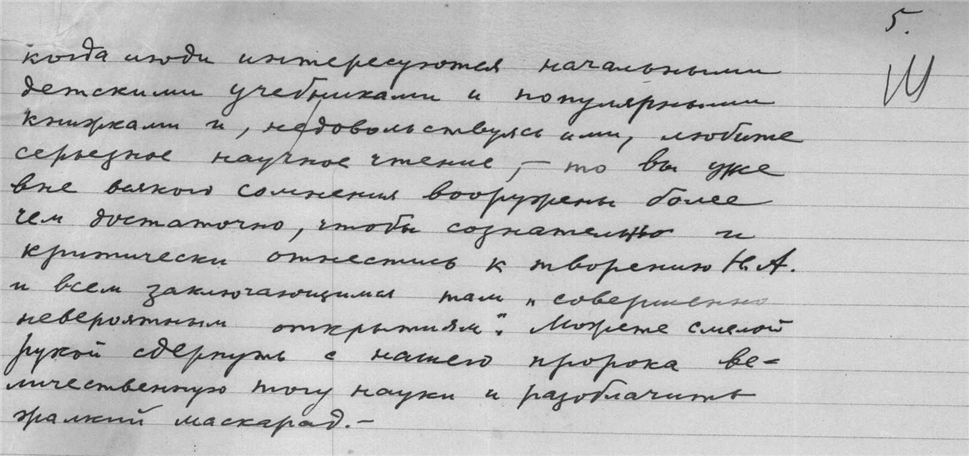 5.
когда люди интересуются начальными
детскими учебниками и популярными
книжками и, не довольствуясь ими, любите
серьезное научное чтение, – то вы уже
вне всякого сомнения вооружены более
чем достаточно, чтобы сознательно и
критически отнестись к творению Н.А.
и всем заключающимся там „совершенно
невероятным открытиям". Можете смелой
рукой сдернуть с нашего пророка ве=
личественную тогу науки и разоблачить
жалкий маскарад. –